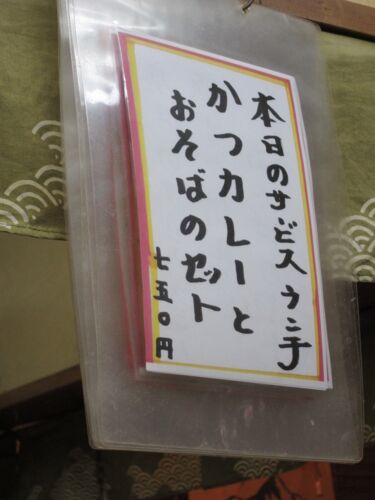 本日のサビスランチ
かつカレーと
おそばのセット
七五〇円